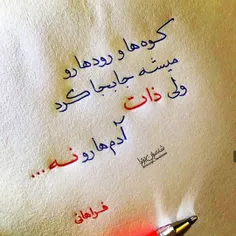 کوه‌ها و رودها رو
میشه جابجا کرد
ولی ذات
آدم‌ها رو نه ...
فراهانی